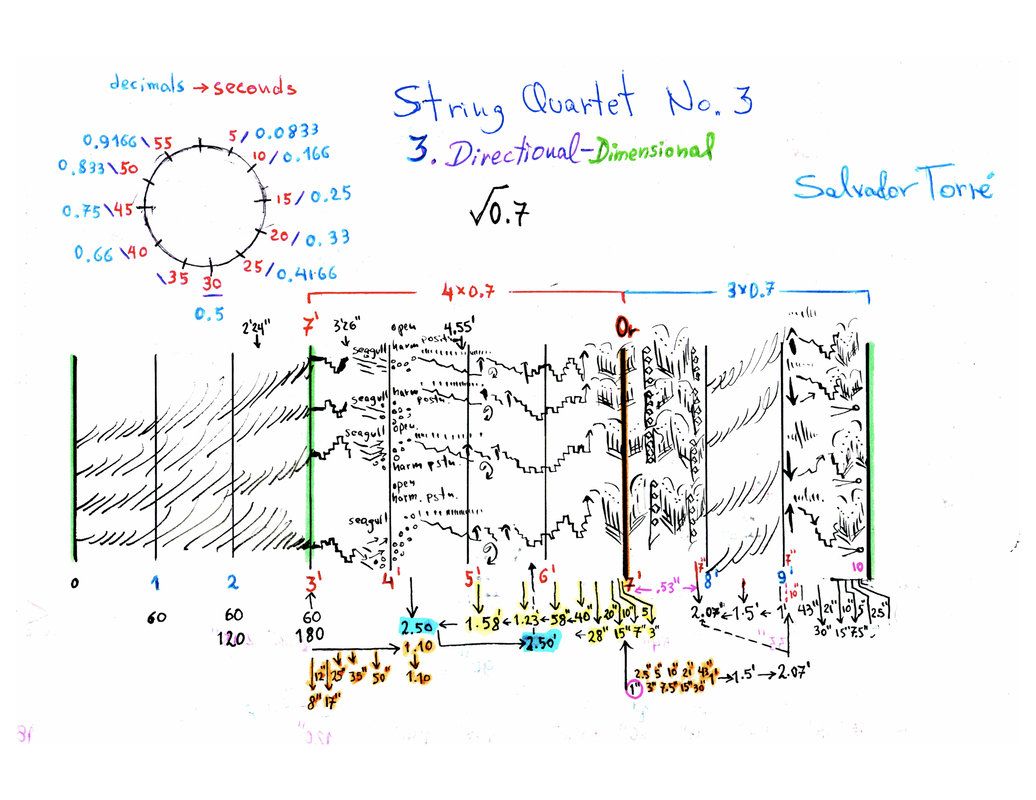 decimals → seconds
String Quartet No. 3
3. Directional-Dimensional
Salvador Torre
√0.7
0.9166\55
5/0.0833
0.833\50
10/0.166
0.75\45
15/0.25
0.66\40
20/0.33
\35
25/0.4166
30
0.5
4×0.7
3×0.7
2'24"
7'
3'26"
open
harm position
4.55'
Or
seagull
seagull
harm
postn.
seagull
open.
harm pstn.
open
harm. pstn.
seagull
0
1
2
3'
4'
5'
6'
7'
.53"
7"
8'
9'
7"
10"
10
60
60
120
60
180
2.50 ← 1.58' ← 1.23' ← 58" ← 40" 20" 10" 5
← 28" 15" 7" 3"
2.50'
2.07' ← 1.5' ← 1'
43" 21" 10" 5" 25"
30" 15" 7.5"
1.10
1.10
12" 25" 35" 50"
8" 17"
2.5" 5" 10" 21" 43" 1' → 1.5' → 2.07'
1" 3" 7.5" 15" 30"